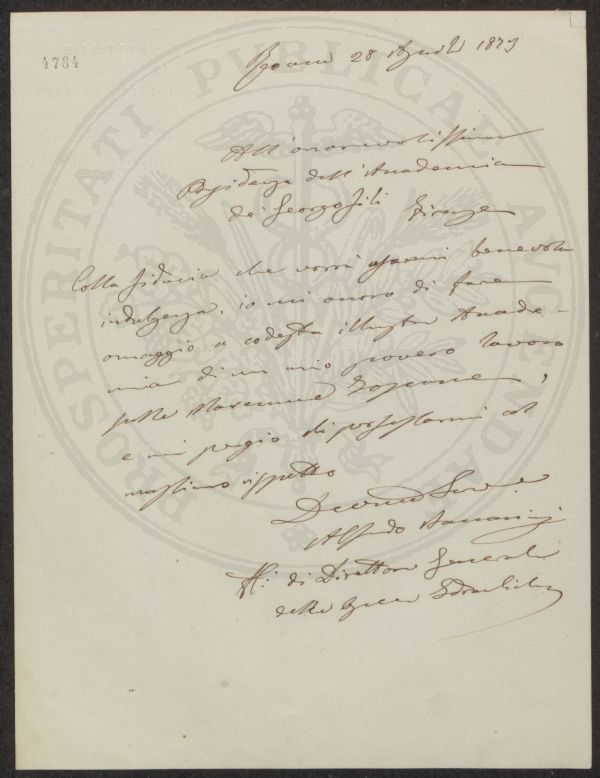 MINISTERO
4784
PROSPERITATI PUBLICAE AUGENDAE
Roma 28 Aprile 1873
All'onorevolissima
Presidenza dell'Accademia
de' Georgofili Firenze
Colla fiducia che vorrà usarmi benevola
indulgenza, io mi onoro di fare
omaggio a codesta illustre Accade-
mia di un mio povero lavoro
sulle Maremme Toscane,
e mi pregio di professarmi col
massimo rispetto
Devmo Servo
Alfredo Baccarini
ff. di Direttore Generale
delle Opere Idrauliche